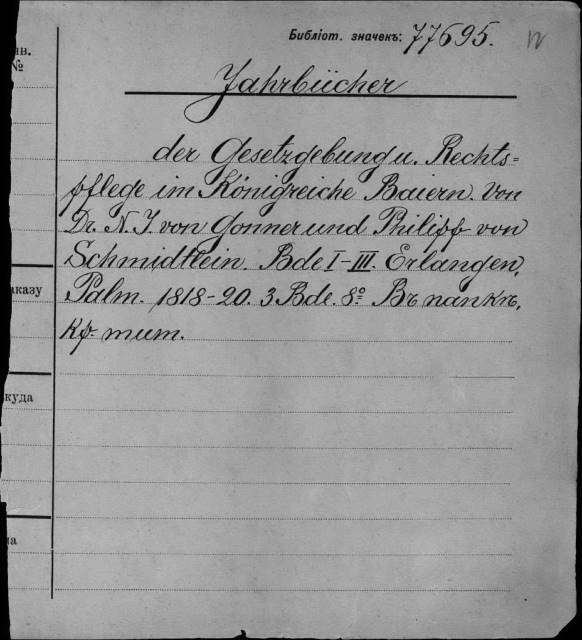 Библіот. значекъ: 77695.
нв.
№
Jahrbücher
der Gesetzgebung u. Rechts=
pflege im Königreiche Baiern. Von
Dr. N. T. von Gönner und Philipp von
Schmidtlein. Bde I-III. Erlangen,
аказу
Palm. 1818-20. 3 Bde. 8º Въ папкѣ,
кф. тит.
куда
на